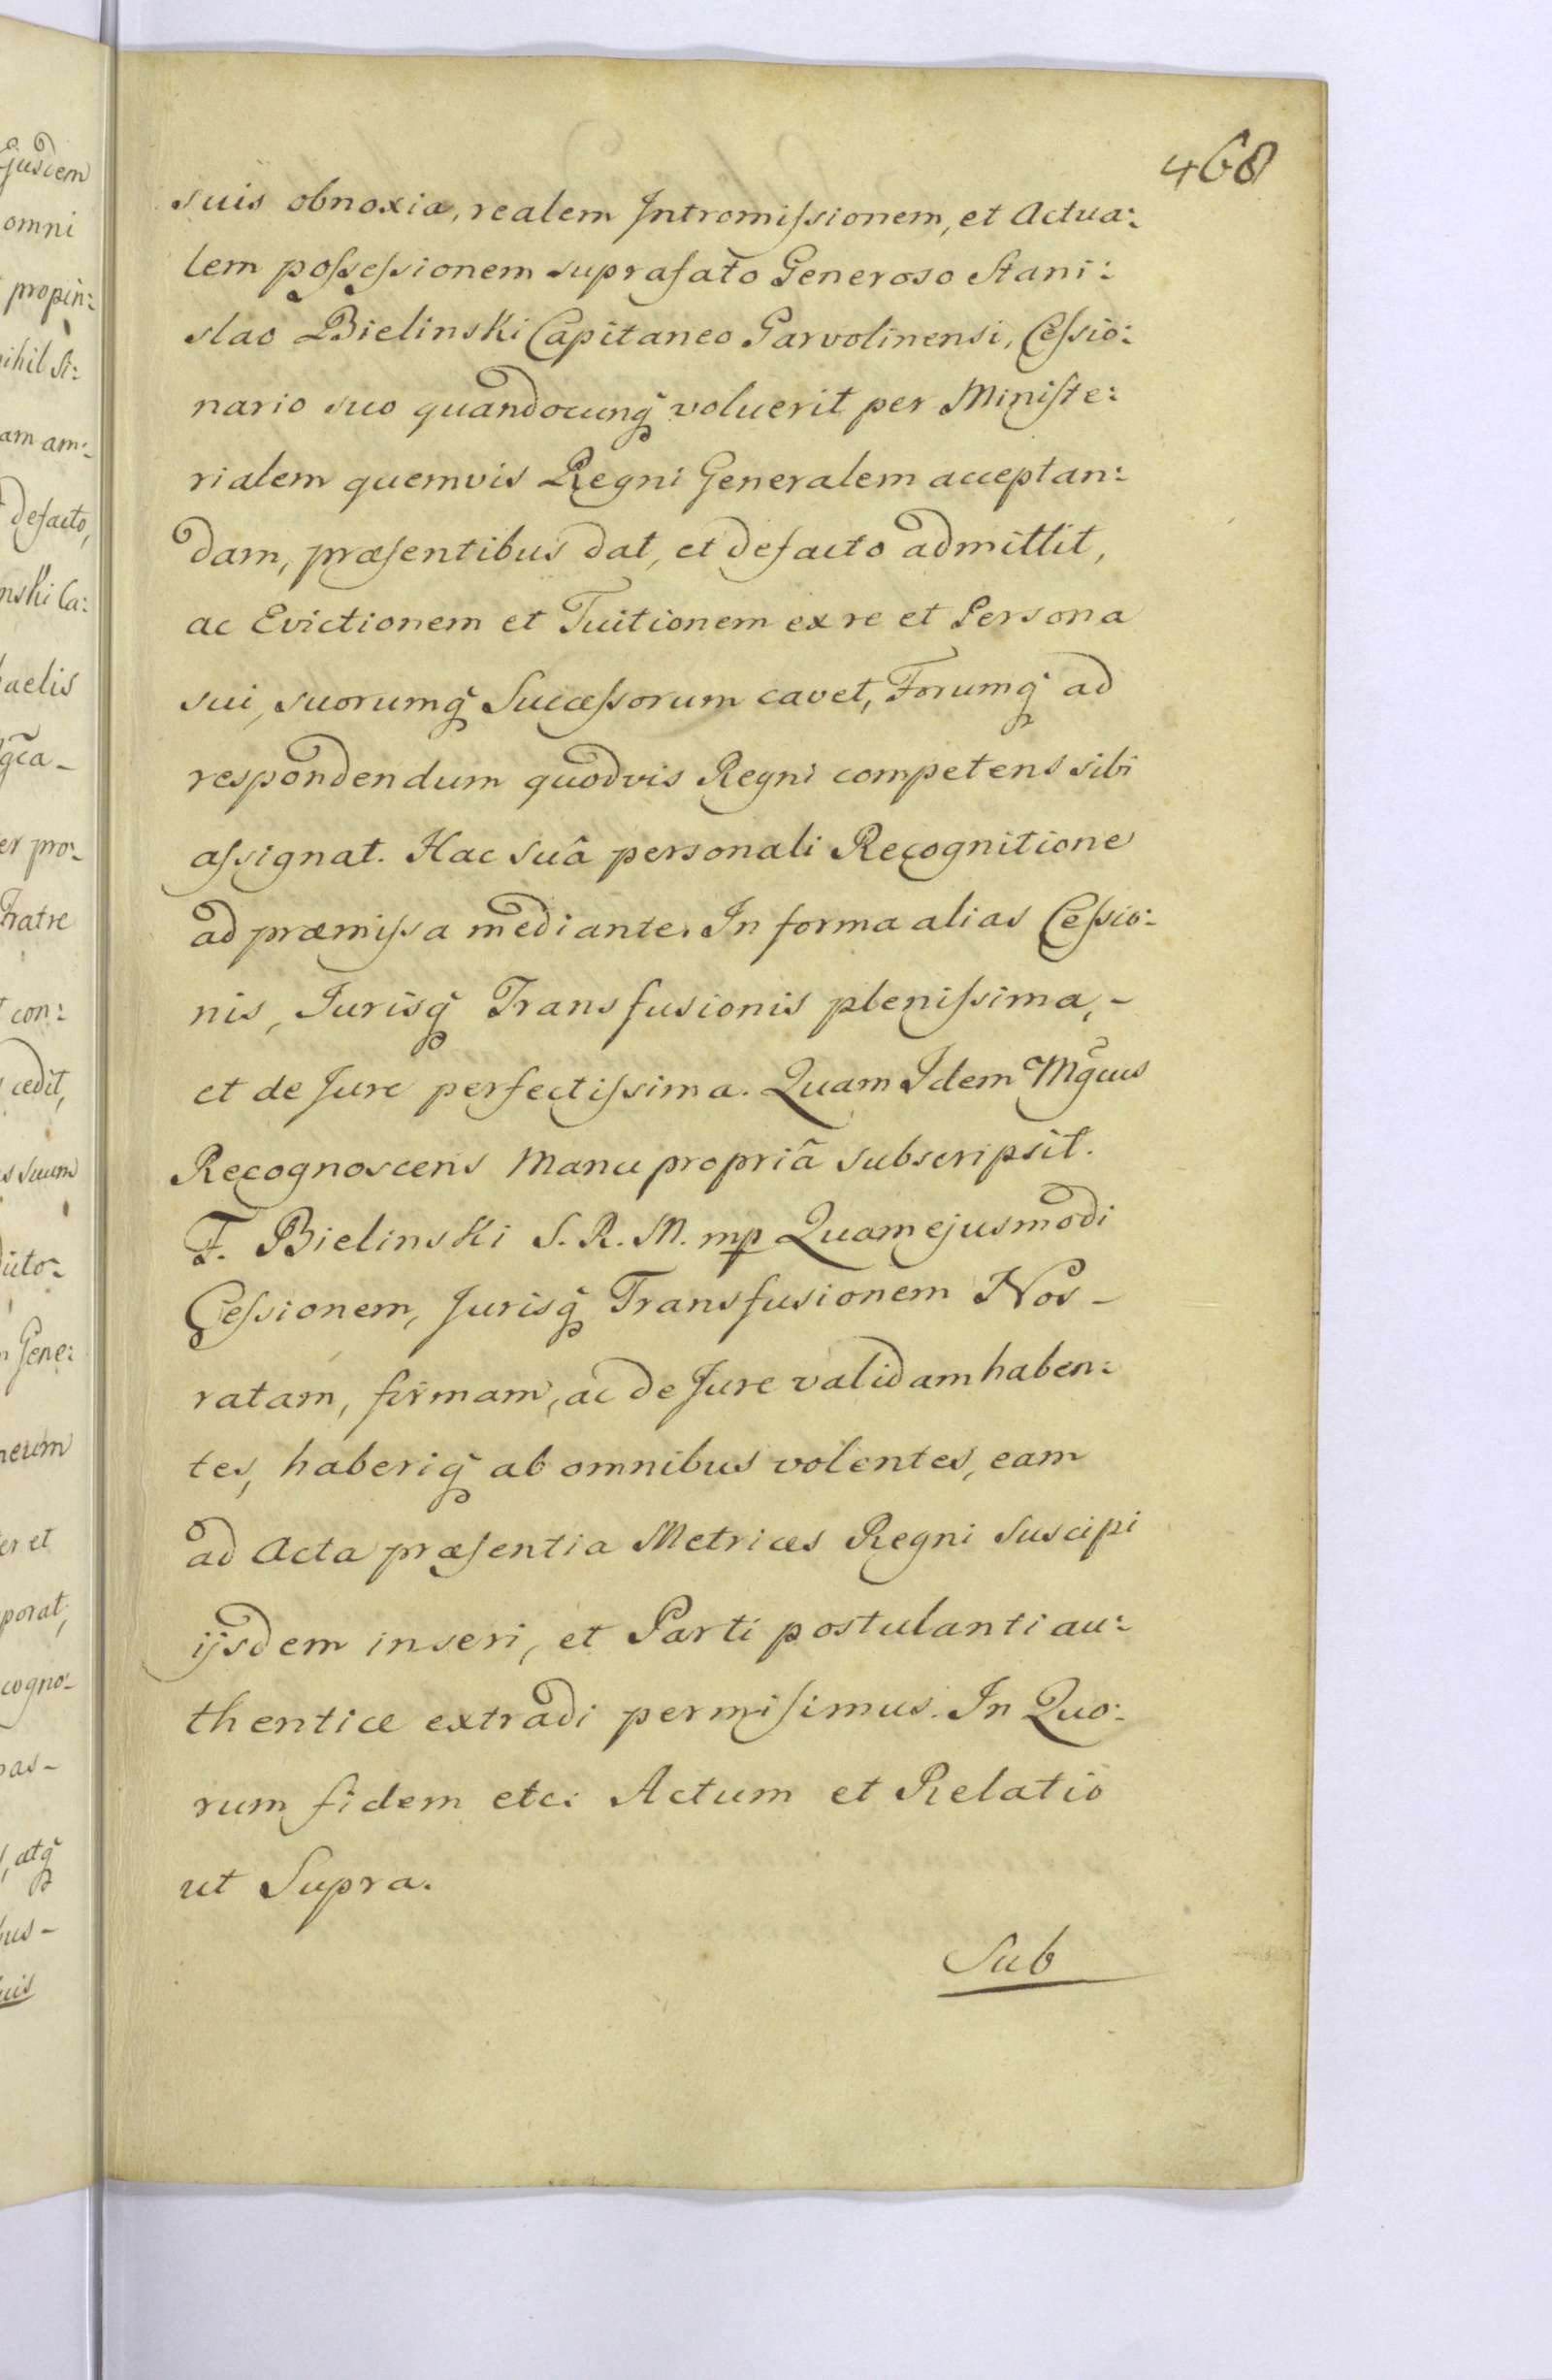 468
suis obnoxia, realem Intromiſsionem, et Actua:
lem poſseſsionem suprafato Generoso Stani:
slao Bielinski Capitaneo Garvolinensi, Ceſsio:
nario suo quandocunq̃ voluerit per Miniſte:
rialem quemvis Regni Generalem acceptan:
dam, præſentibus dat, et defacto admittit,
ac Evictionem et Tuitionem ex re et Persona
sui, suorumq̃ Succeſsorum cavet, Forumq̃ ad
respondendum quodvis Regni competens sibi
aſsignat. Hac suâ personali Recognitione
ad præmiſsa mediante. In forma alias Ceſsio:
nis, Jurisq̃ Transfusionis pleniſsima, -
et de Jure perfectiſsima. Quam Idem Mgcus
Recognoscens Manu propriâ subscripsit.
F. Bielinski S. R. M. mp Quam ejusmodi
Ceſsionem, Jurisq̃ Transfusionem Nos -
ratam, firmam, ac de Jure validam haben:
tes, haberiq̃ ab omnibus volentes, eam
ad Acta præſentia Metrices Regni Suscipi
ijsdem inseri, et Parti postulanti au:
thentice extradi permiſimus. In Quo:
rum fidem etc: Actum et Relatio
ut Supra.
Sub